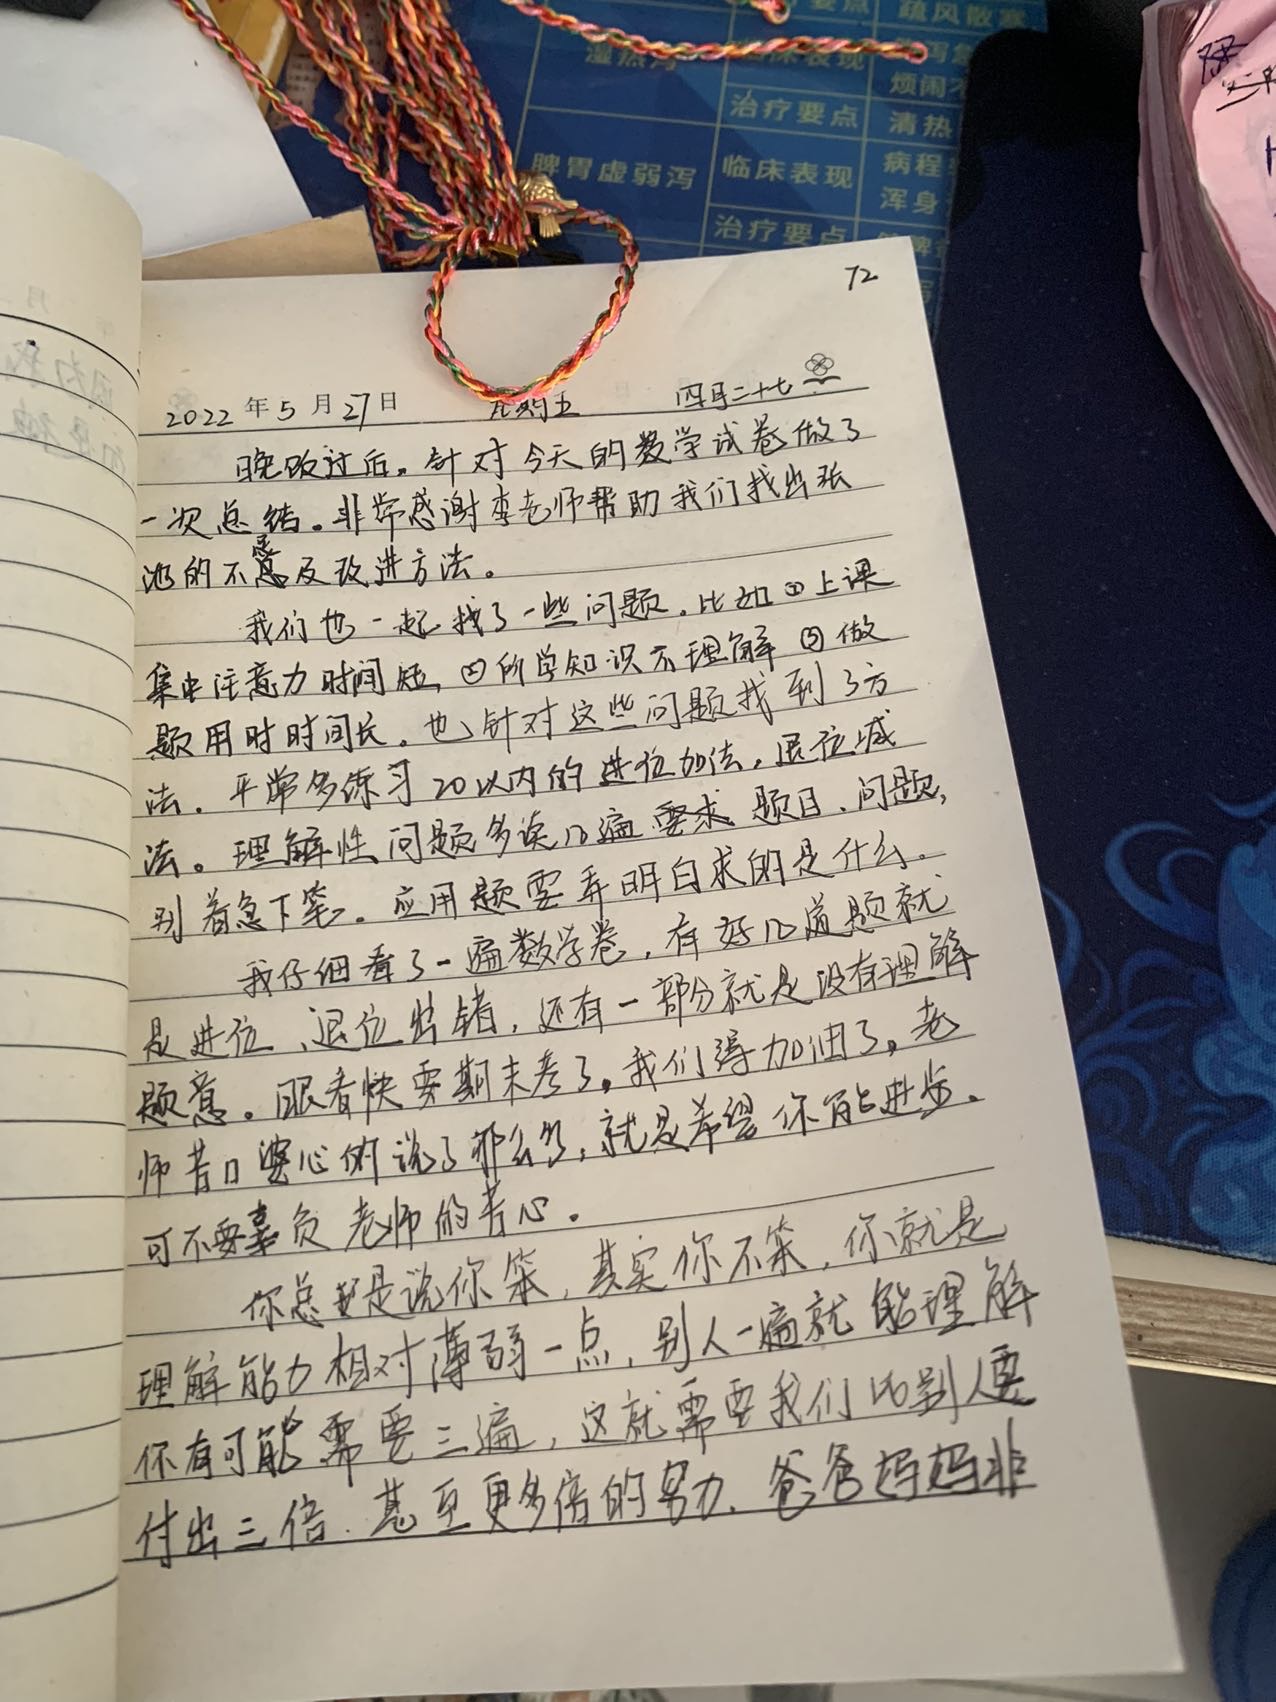 要点 疏风散寒
湿热泻 临床表现
烦闹不
治疗要点 清热
脾胃虚弱泻 临床表现 病程
浑身
治疗要点
72
2022年5月27日 四月二十七
晚饭过后。针对今天的数学试卷做了
一次总结。非常感谢李老师帮助我们找出张
的不 及改进方法。
我们也一起找了一些问题。比如①上课
集中注意力时间短,②所学知识不理解③做
题用时时间长。也针对这些问题找到了方
法。平常多练习20以内的进位加法,退位减
法。理解性问题多读几遍要求题目、问题,
别着急下笔。应用题要弄明白求的是什么。
我仔细看了一遍数学卷,有好几道题就
是进位、退位出错,还有一部分就是没有理解
题意。眼看快要期末考了。我们得加油了。老
师苦口婆心的说了那么多,就是希望你能进步。
可不要辜负老师的苦心。
你总是说你笨,其实你不笨,你就是
理解能力相对薄弱一点,别人一遍就能理解
你有可能需要三遍,这就需要我们比别人要
付出三倍、甚至更多倍的努力、爸爸妈妈非